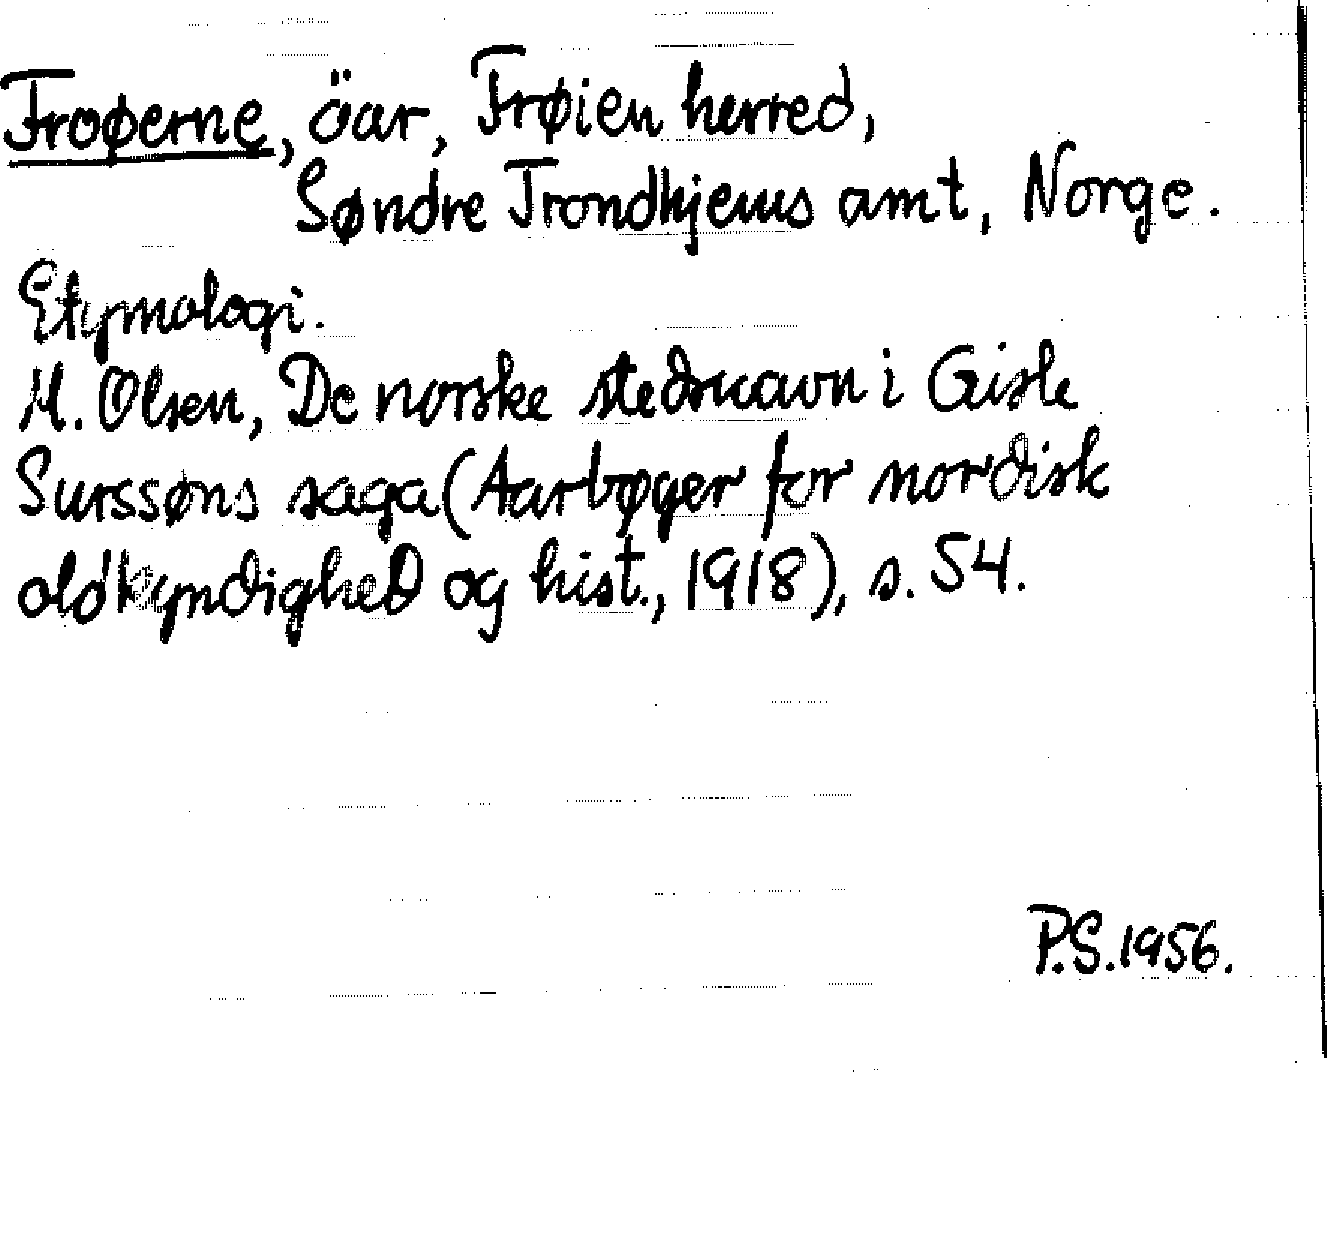 Froøerne, öar, Frøien herred,
Søndre Trondhjems amt, Norge.
Etymologi.
M. Olsen, De norske stedsnavn i Gisle
Surssøns saga (Aarbøger for nordisk
oldkyndighed og hist., 1918), s. 54.
P.S. 1956.